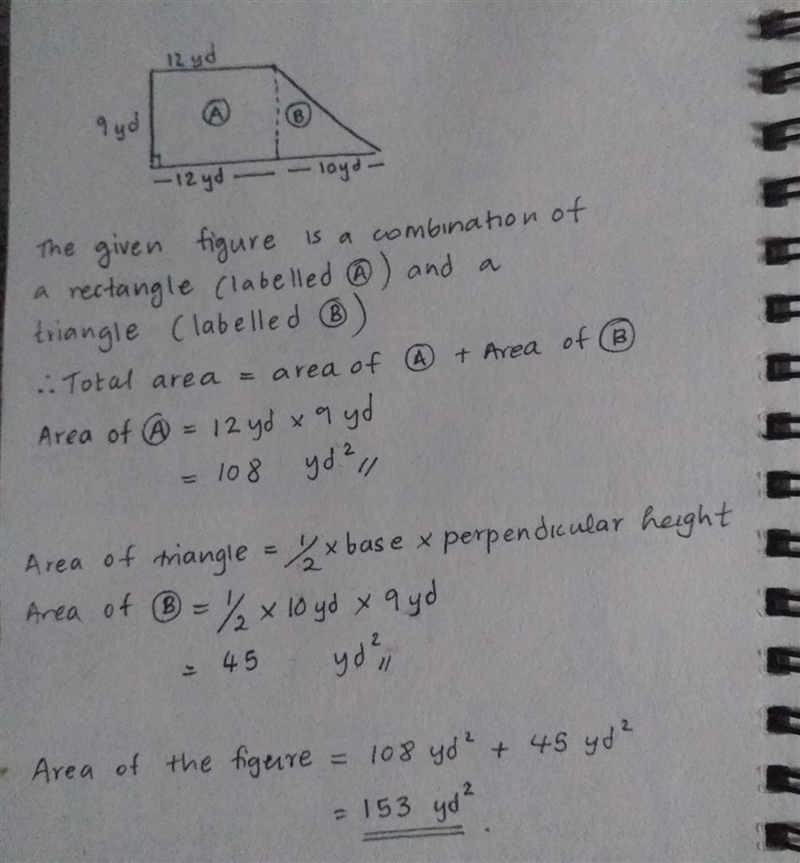 12 yd
9 yd
Ⓐ
Ⓑ
—12 yd — — 10yd —
The given figure is a combination of
a rectangle (labelled Ⓐ) and a
triangle (labelled Ⓑ)
∴ Total area = area of Ⓐ + Area of Ⓑ
Area of Ⓐ = 12 yd × 9 yd
= 108 yd² //
Area of triangle = 1/2 × base × perpendicular height
Area of Ⓑ = 1/2 × 10 yd × 9 yd
= 45 yd² //
Area of the figure = 108 yd² + 45 yd²
= 153 yd².